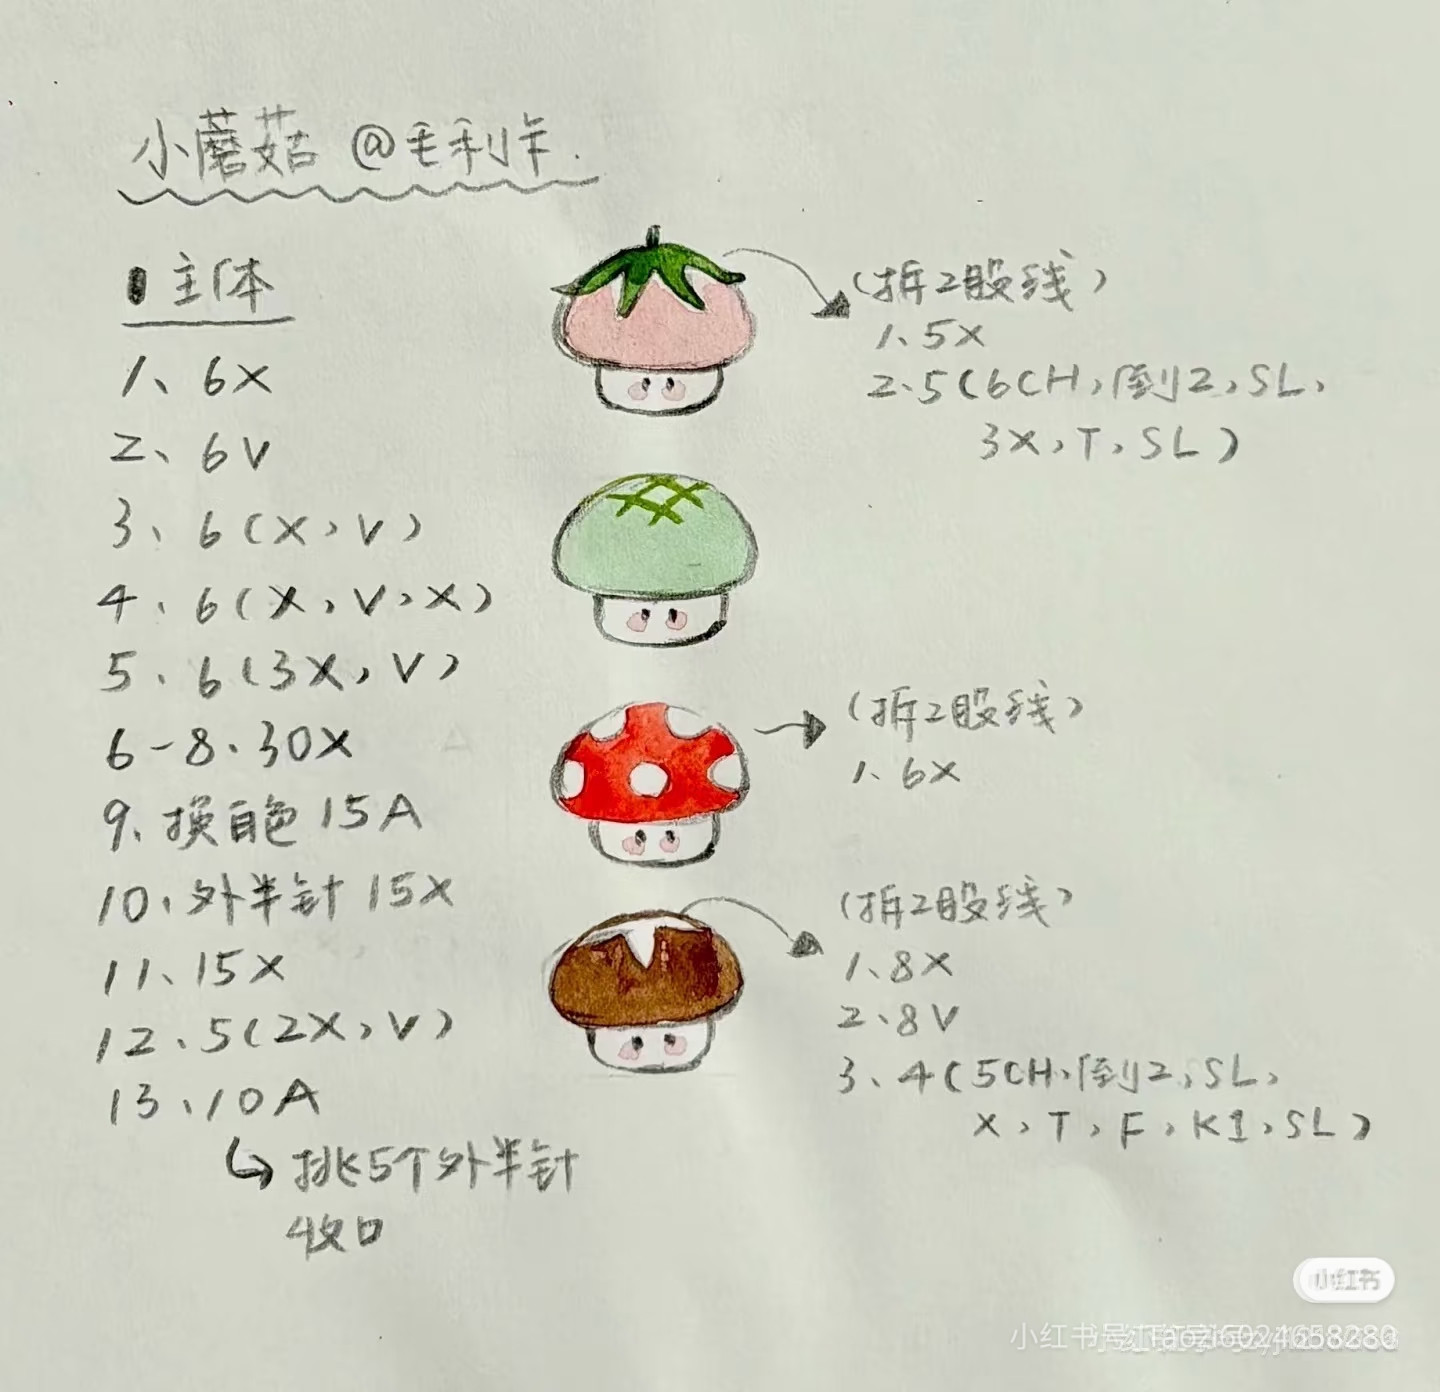 小蘑菇 @毛利卡.
主体
1、6X
2、6V
3、6(X,V)
4、6(X,V,X)
5、6(3X,V)
6-8、30X
9、换白色 15A
10、外半针 15X
11、15X
12、5(2X,V)
13、10A
挑5个外半针
收口
(拆2股线)
1、5X
2、5(6CH,倒2,SL,
3X,T,SL)
(拆2股线)
1、6X
(拆2股线)
1、8X
2、8V
3、4(5CH,倒2,SL,
X,T,F,K1,SL)
小红书